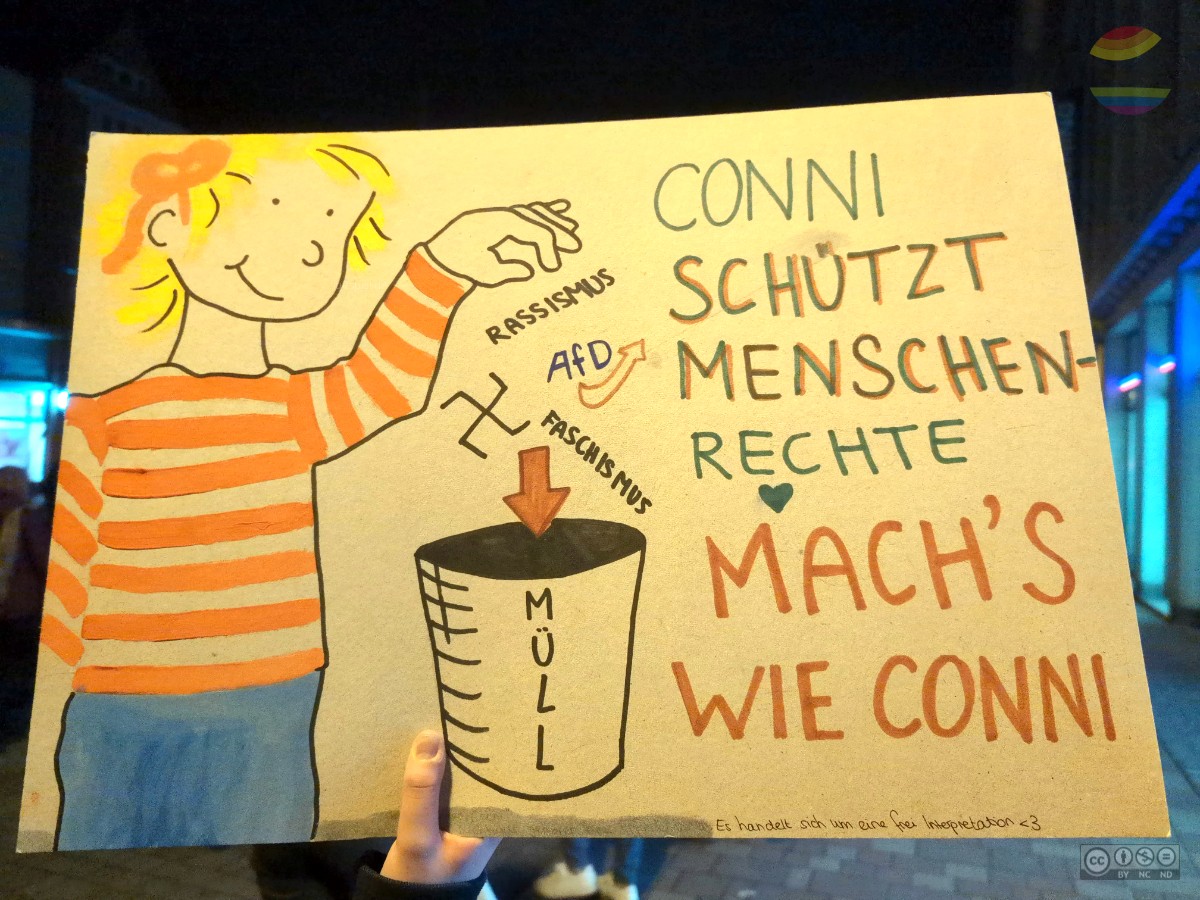 CONNI
SCHÜTZT
MENSCHEN-
RECHTE
MACH'S
WIE CONNI
RASSISMUS
AfD
FASCHISMUS
MÜLL
Es handelt sich um eine frei Interpretation <3
cc
BY NC ND